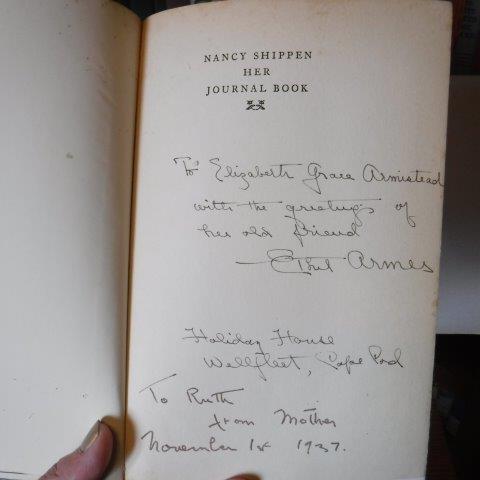 NANCY SHIPPEN
HER
JOURNAL BOOK
To Elizabeth Grace Armistead
with the greetings of
her old friend
— Ethel Armes
Holiday House
Wellfleet, Cape Cod
To Ruth
from Mother
November 1st 1937.